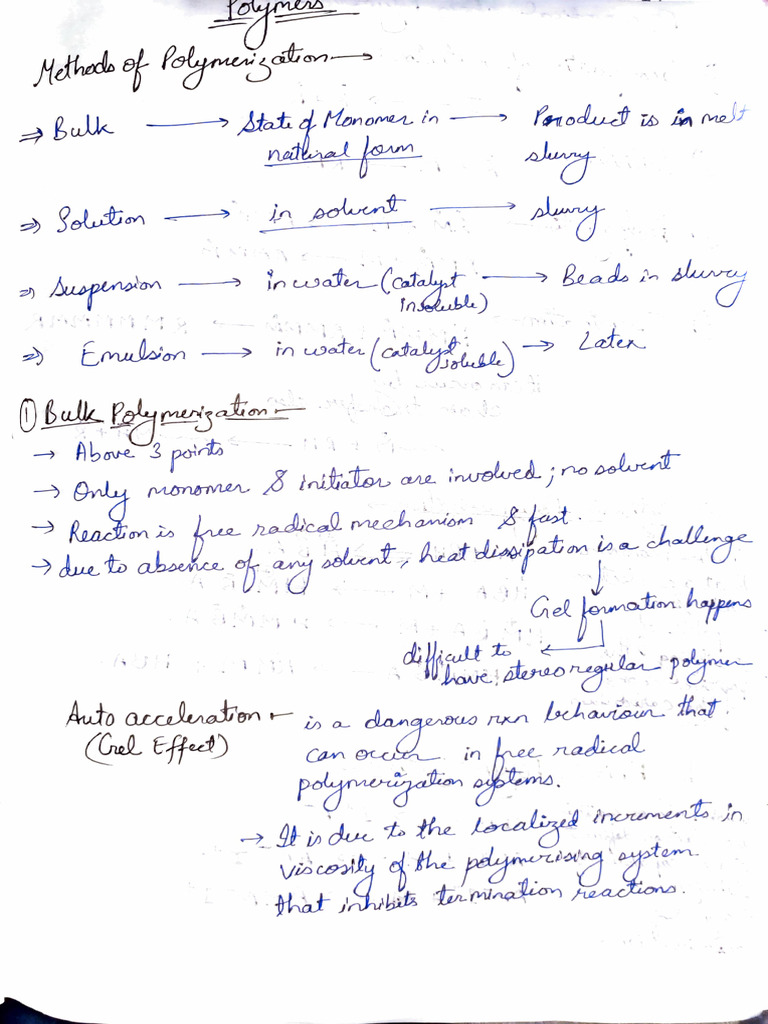 Polymers
Methods of Polymerization →
⇒ Bulk → State of Monomer in → Product is in melt
natural form slurry
⇒ Solution → in solvent → slurry
⇒ Suspension → in water (catalyst → Beads in slurry
insoluble)
⇒ Emulsion → in water (catalyst → Latex
soluble)
① Bulk Polymerization -
→ Above 3 points
→ Only monomer & initiator are involved; no solvent
→ Reaction is free radical mechanism & fast.
→ due to absence of any solvent, heat dissipation is a challenge
Gel formation happens
difficult to
have stereoregular polymer
Auto acceleration - is a dangerous rxn behaviour that
(Gel Effect) can occur in free radical
polymerization systems.
→ It is due to the localized increments in
viscosity of the polymerising system
that inhibits termination reactions.